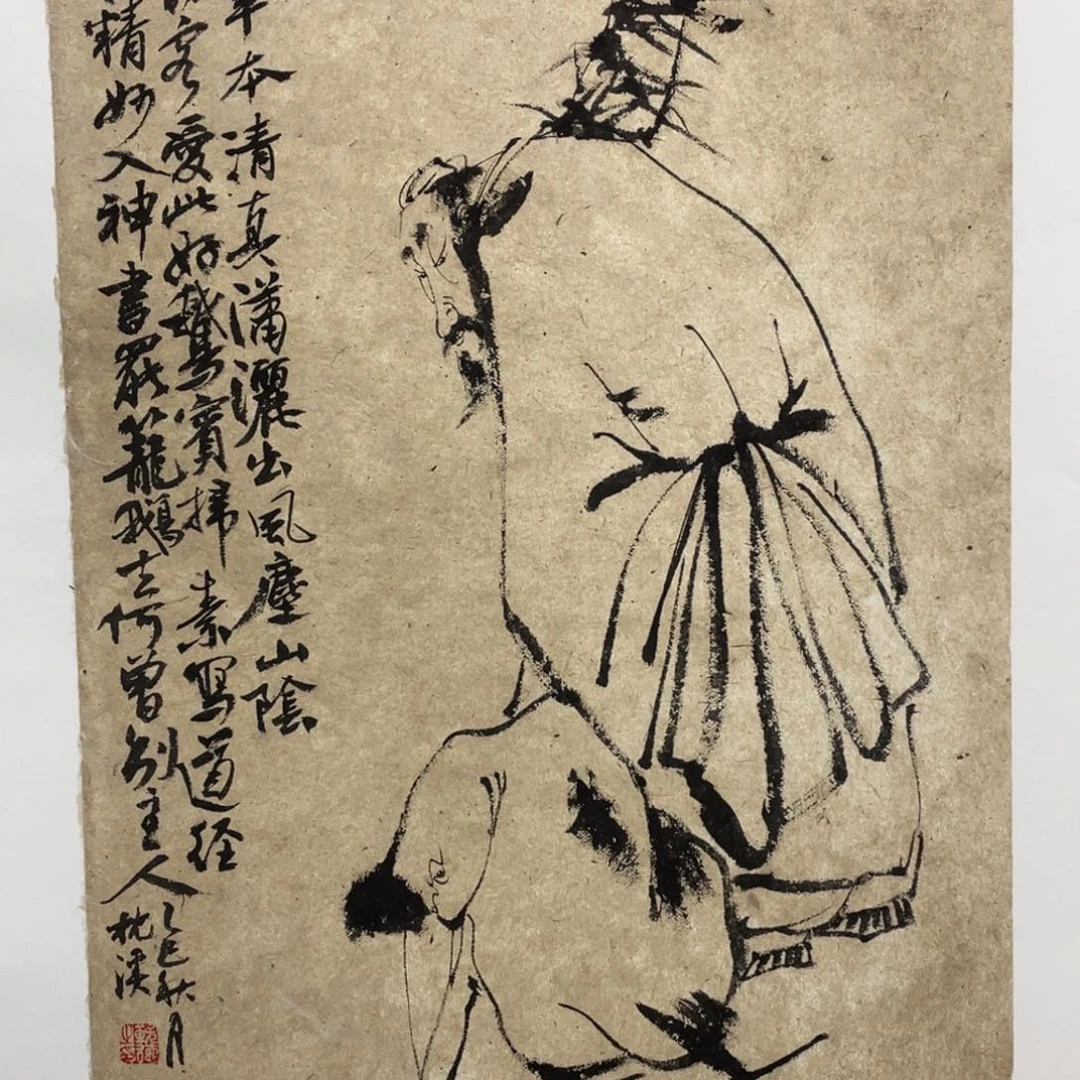 本清真瀟灑出風塵山陰
客愛此好鵞賓掃素寫道经
精妙入神書罷籠鵝去何曾別主人
乙巳秋月
枕溪